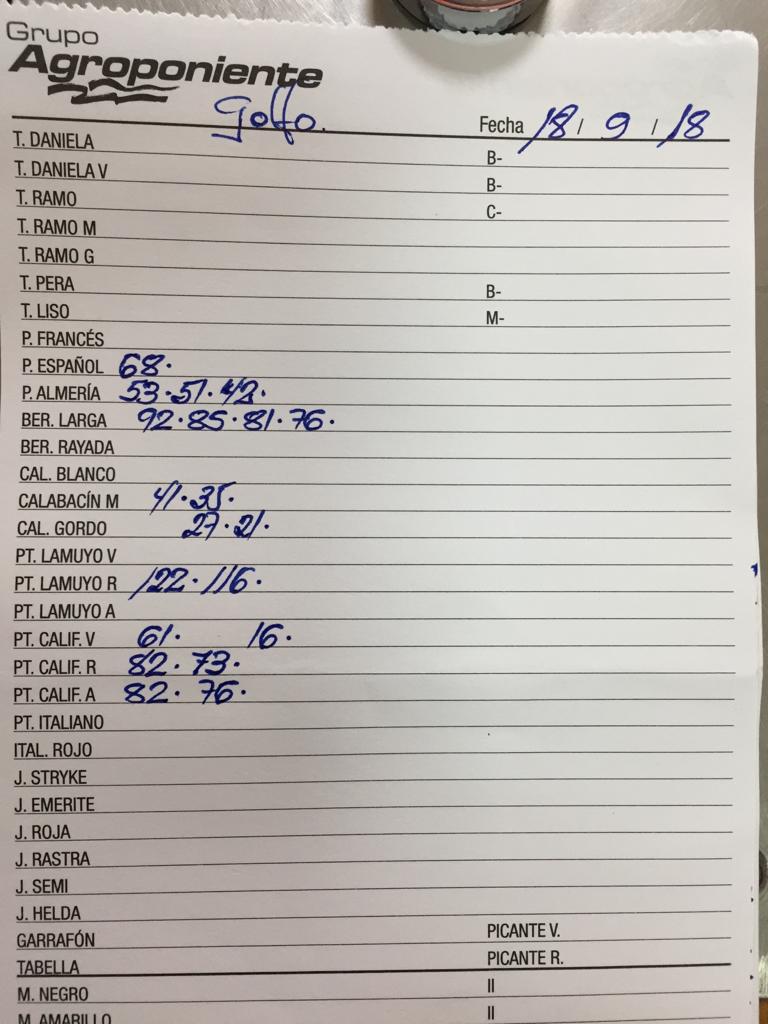 Grupo
Agroponiente
Golfo.
Fecha 18 / 9 / 18
T. DANELA B-
T. DANIELA V B-
T. RAMO C-
T. RAMO M
T. RAMO G
T. PERA B-
T. LISO M-
P. FRANCÉS
P. ESPAÑOL 68.
P. ALMERÍA 53.51.42.
BER. LARGA 92.85.81.76.
BER. RAYADA
CAL. BLANCO
CALABACÍN M 41.35.
CAL. GORDO 27.21.
PT. LAMUYO V
PT. LAMUYO R 122.116.
PT. LAMUYO A
PT. CALIF. V 61. 16.
PT. CALIF. R 82.73.
PT. CALIF. A 82.76.
PT. ITALIANO
ITAL. ROJO
J. STRYKE
J. EMERITE
J. ROJA
J. RASTRA
J. SEMI
J. HELDA
GARRAFÓN PICANTE V.
TABELLA PICANTE R.
M. NEGRO II
M. AMARILLO II